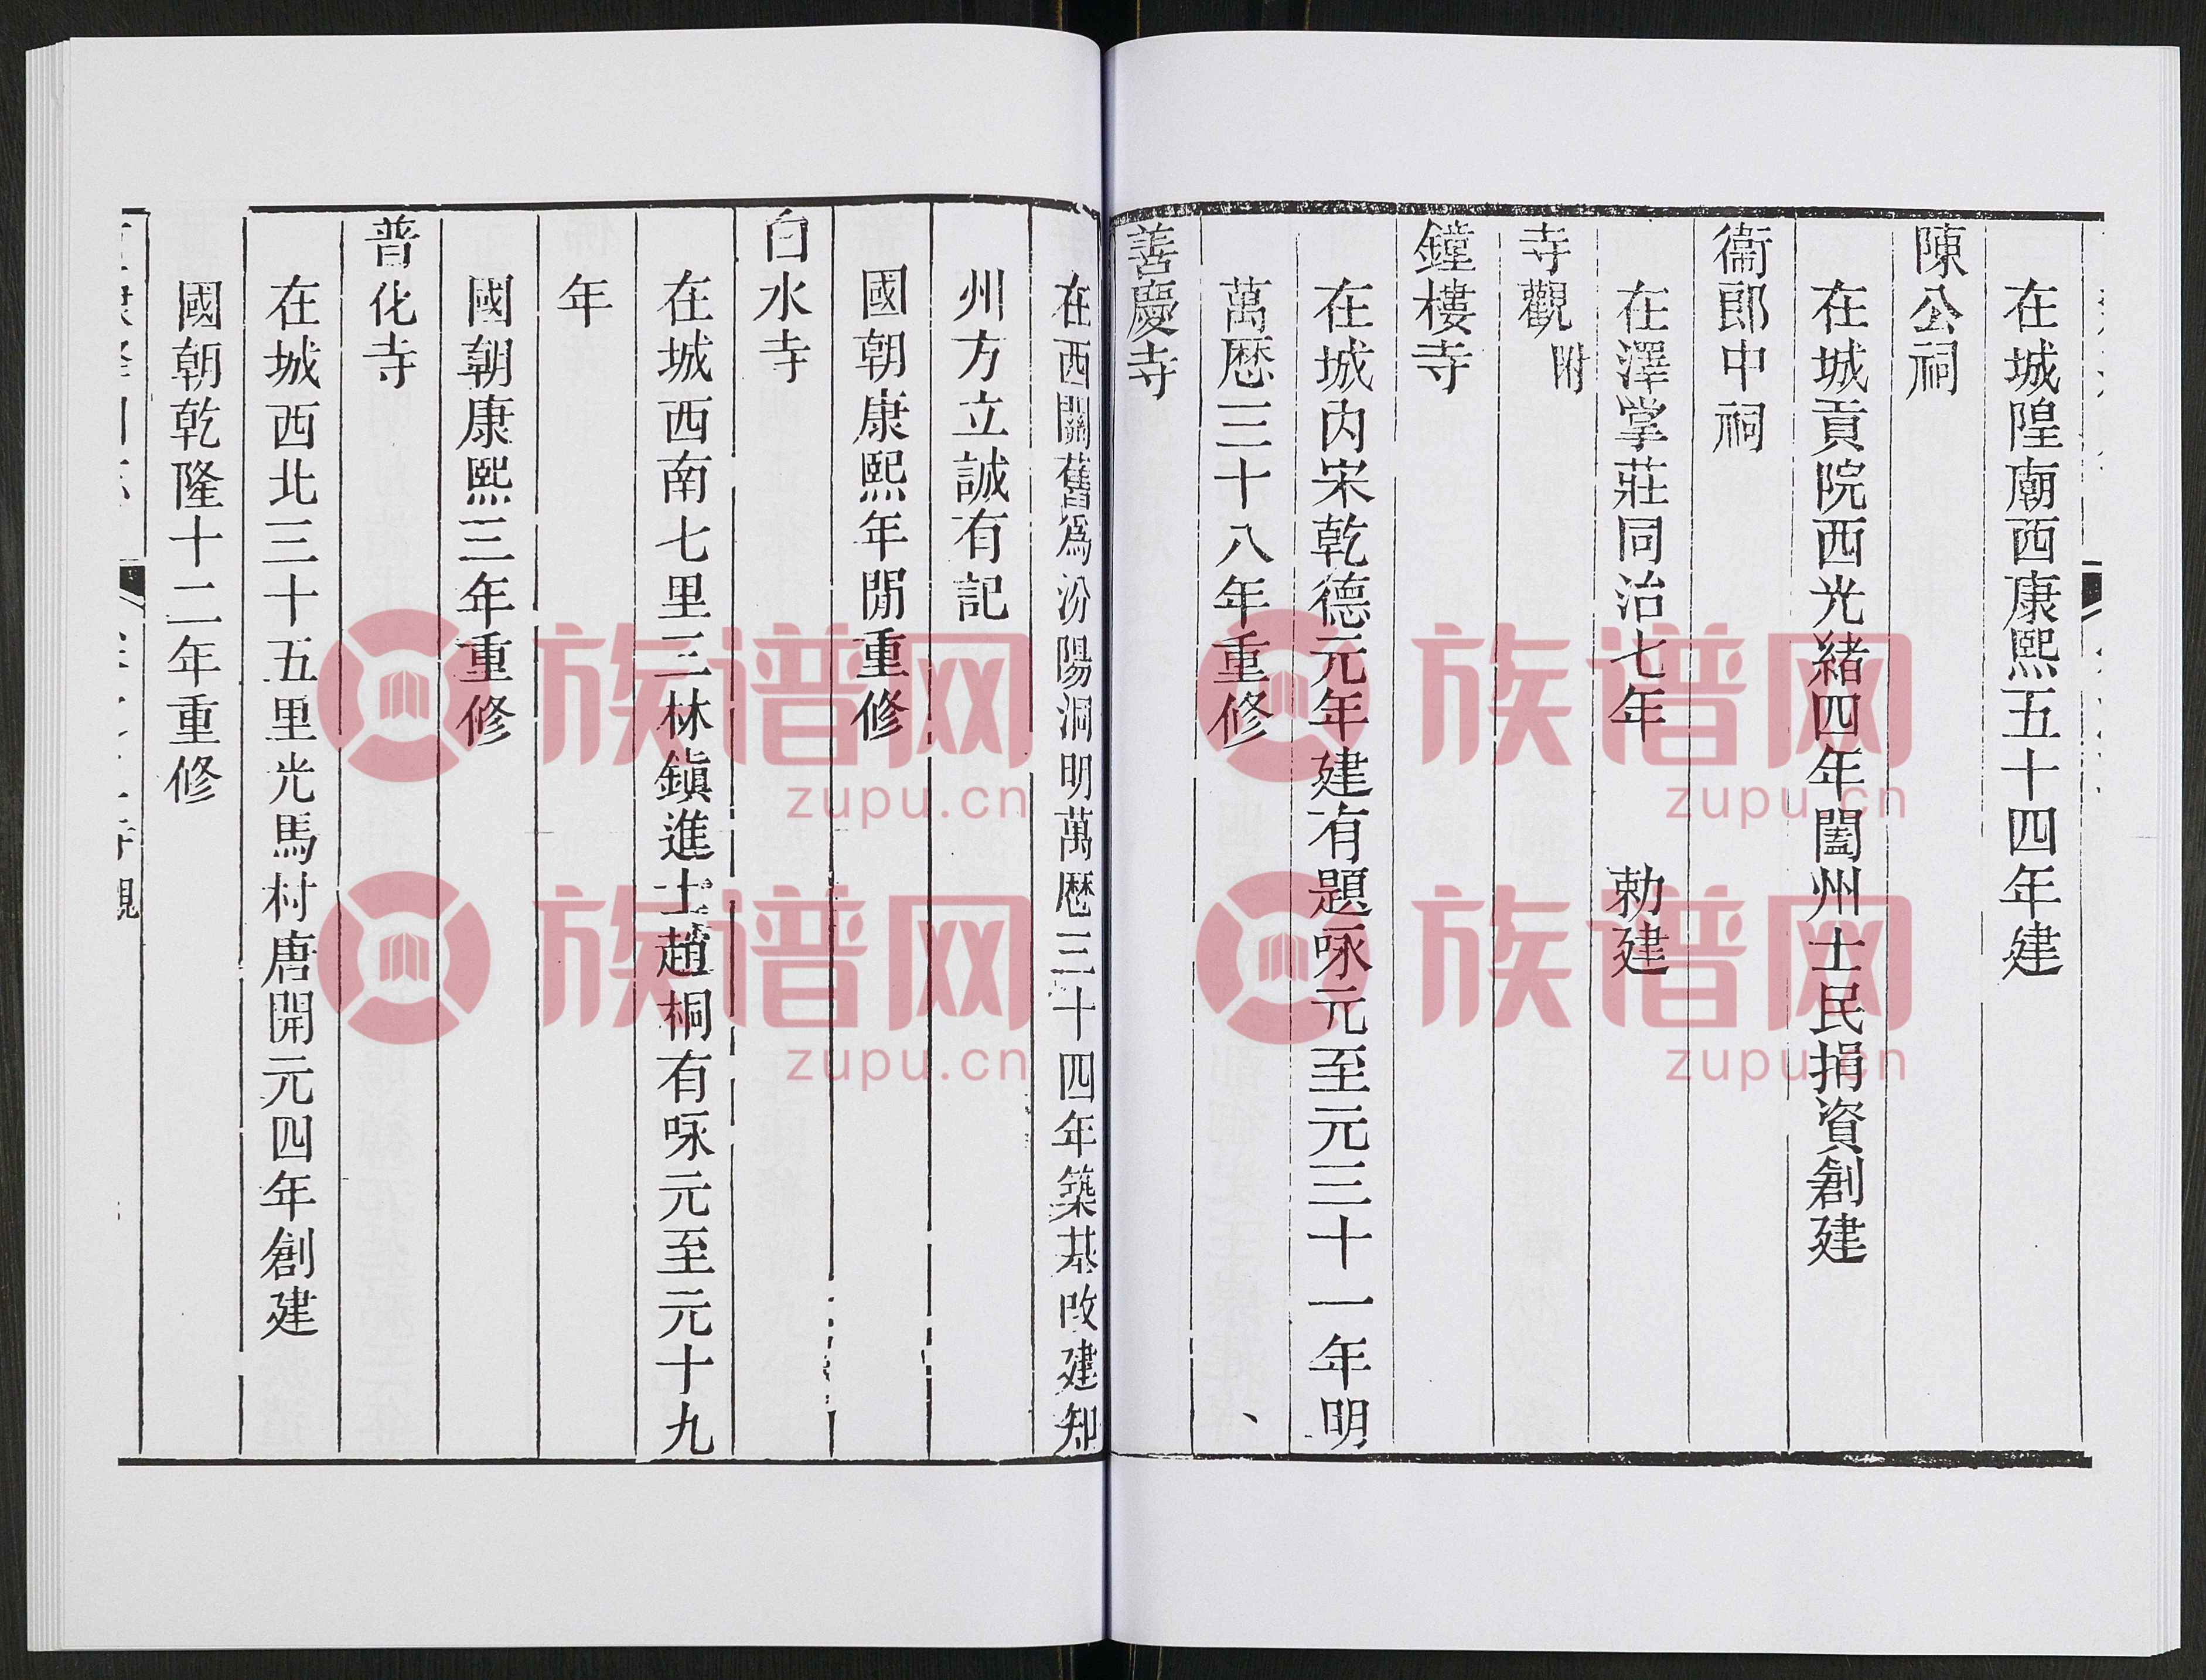 在城隍廟西康熙五十四年建
陳公祠
在城貢院西光緒四年闔州士民捐資創建
衞郎中祠
在澤掌莊同治七年　勅建
寺觀附
鐘樓寺
在城内宋乾德元年建有題咏元至元三十一年明
萬厯三十八年重修
善慶寺
在西關舊爲汾陽洞明萬厯三十四年築基改建知
州方立誠有記
國朝康熙年間重修
白水寺
在城西南七里三林鎮進士趙桐有咏元至元十九
年
國朝康熙三年重修
普化寺
在城西北三十五里光馬村唐開元四年創建
國朝乾隆十二年重修
族谱网
zupu.cn
族谱网
zupu.cn
族谱网
zupu.cn
族谱网
zupu.cn